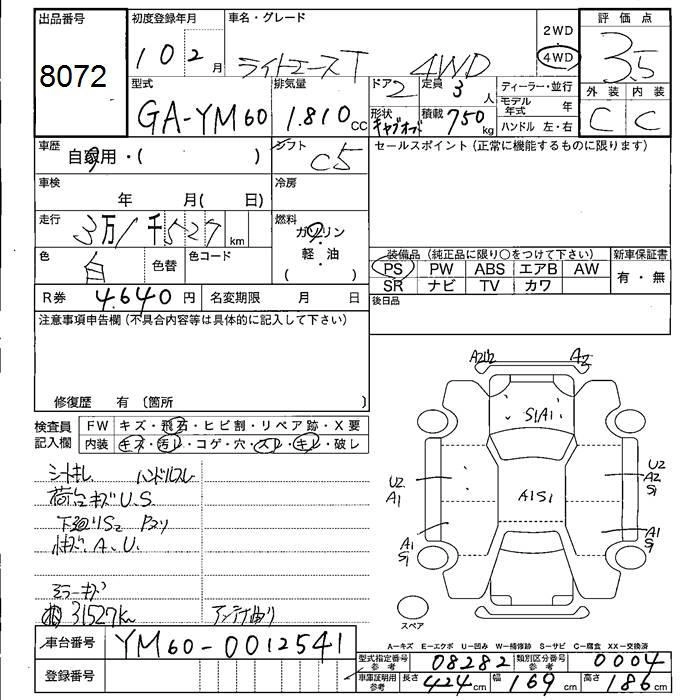 出品番号
8072
初度登録年月
10 2 月
車名・グレード
ライトエースT 4WD
2WD
4WD
評価点
3.5
外装 内装
C C
型式
GA-YM60
排気量
1.810 CC
ドア 2
形状
定員 3 人
積載 750 kg
ディーラー・並行
モデル年式 年
ハンドル 左・右
車歴
自家用・( )
シフト
C5
セールスポイント (正常に機能するものに限ります)
車検
年 月( 日)
冷房
走行
3万1千527 km
燃料
ガソリン
・
軽・油
( )
色
白
色替
色コード
装備品 (純正品に限り○をつけて下さい)
PS PW ABS エアB AW
SR ナビ TV カワ
新車保証書
有・無
R券 4.640 円
名変期限 月 日
後日品
注意事項申告欄 (不具合内容等は具体的に記入して下さい)
修復歴 有 〔箇所 〕
検査員記入欄
FW キズ・飛石・ヒビ割・リペア跡・X要
内装 キズ・汚レ・コゲ・穴・スレ・キレ・破レ
シートキレ ハンドルスレ
荷台キズU.S
下廻りS2 Pヌリ
A.U.
ミラーキズ
31527km アンテナ曲り
A2
S1A1
A1S1
U2
A1
U2
A2
S1
A1
S1
A1
S
スペア
A-キズ E-エクボ U-凹み W-補修跡 S-サビ C-腐食 XX-交換済
車台番号 YM60-0012541
登録番号
型式指定番号参考 08282 類別区分番号参考 0004
車庫証明用参考 長さ 424 cm 幅 169 cm 高さ 186 cm